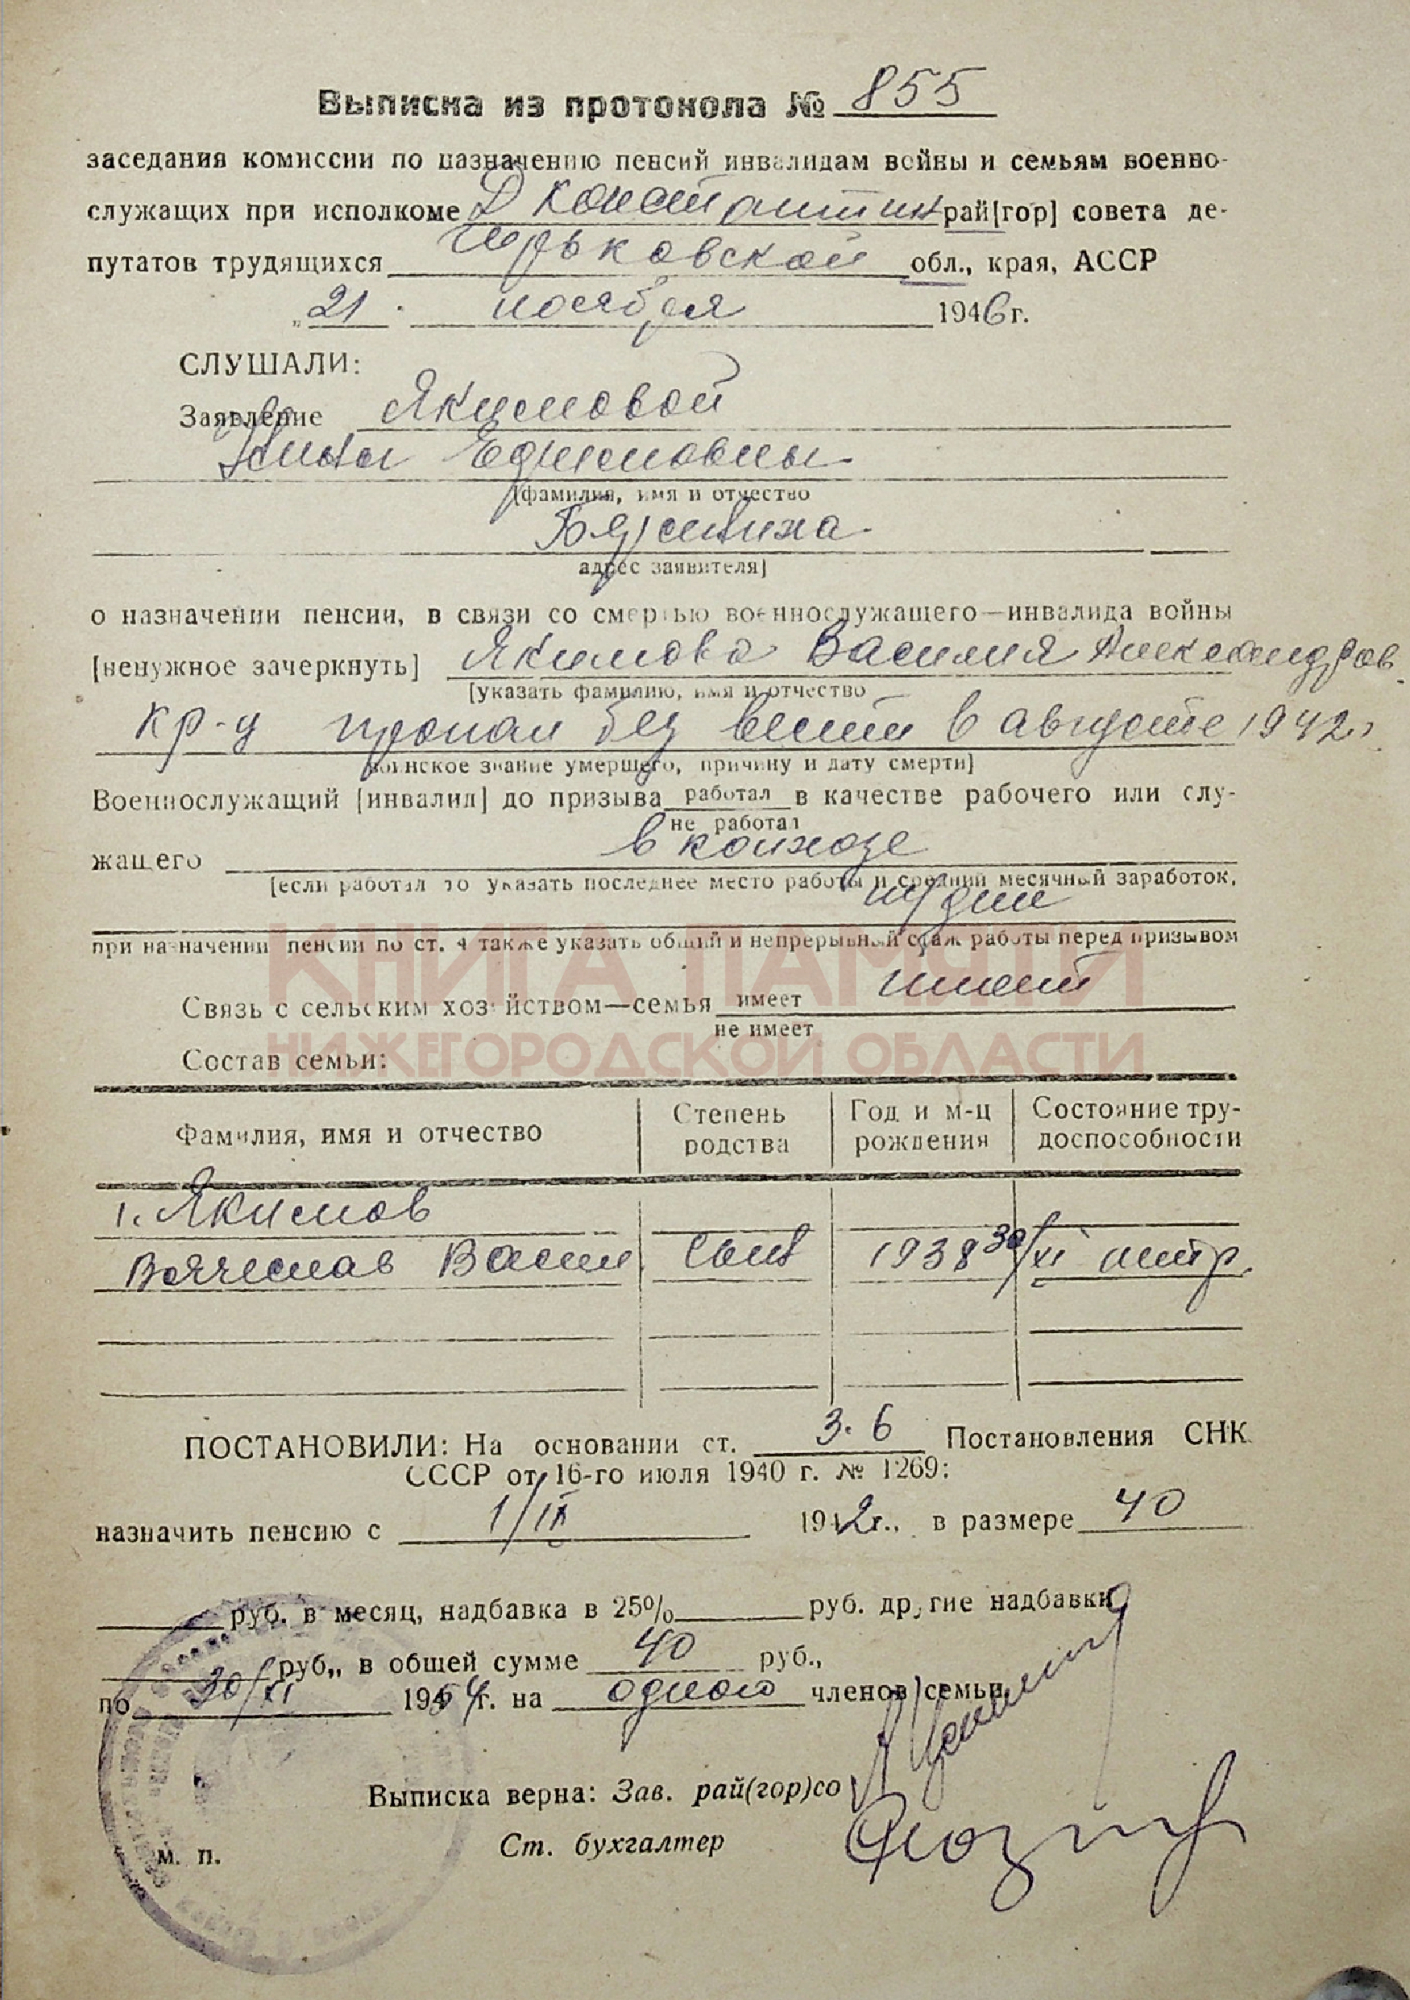 Выписка из протокола № 855
заседания комиссии по назначению пенсий инвалидам войны и семьям военно-
служащих при исполкоме Д Константин рай[гор] совета де-
путатов трудящихся Горьковской обл., края, АССР
„21 ноября 1946 г.
СЛУШАЛИ:
Заявление Якимовой
Ефимовны
[фамилия, имя и отчество
адрес заявителя]
о назначении пенсии, в связи со смертью военнослужащего—инвалида войны
[ненужное зачеркнуть] Якимова Василия Александров.
[указать фамилию, имя и отчество
кр-ц пропал без вести в августе 1942 г
воинское знание умершего, причину и дату смерти]
Военнослужащий [инвалид] до призыва работал в качестве рабочего или слу-
не работал
жащего в колхозе
[если работал то указать последнее место работы и средний месячный заработок,
тр/дни
при назначении пенсии по ст. 4 также указать общий и непрерывный стаж работы перед призывом
КНИГА ПАМЯТИ
Связь с сельским хозяйством—семья имеет имеет
не имеет
НИЖЕГОРОДСКОЙ ОБЛАСТИ
Состав семьи:
Фамилия, имя и отчество Степень родства Год и м-ц рождения Состояние тру-доспособности
1. Якимов
Вячеслав Васил. сын 1938 30/XI
ПОСТАНОВИЛИ: На основании ст. 3. 6 Постановления СНК
СССР от 16-го июля 1940 г. № 1269:
назначить пенсию с 1/IX 1942 г., в размере 40
руб. в месяц, надбавка в 25% руб. другие надбавки
руб., в общей сумме 40 руб.,
по 30/XI 1954 г. на одного членов семьи
Выписка верна: Зав. рай(гор)со
Ст. бухгалтер
м. п.